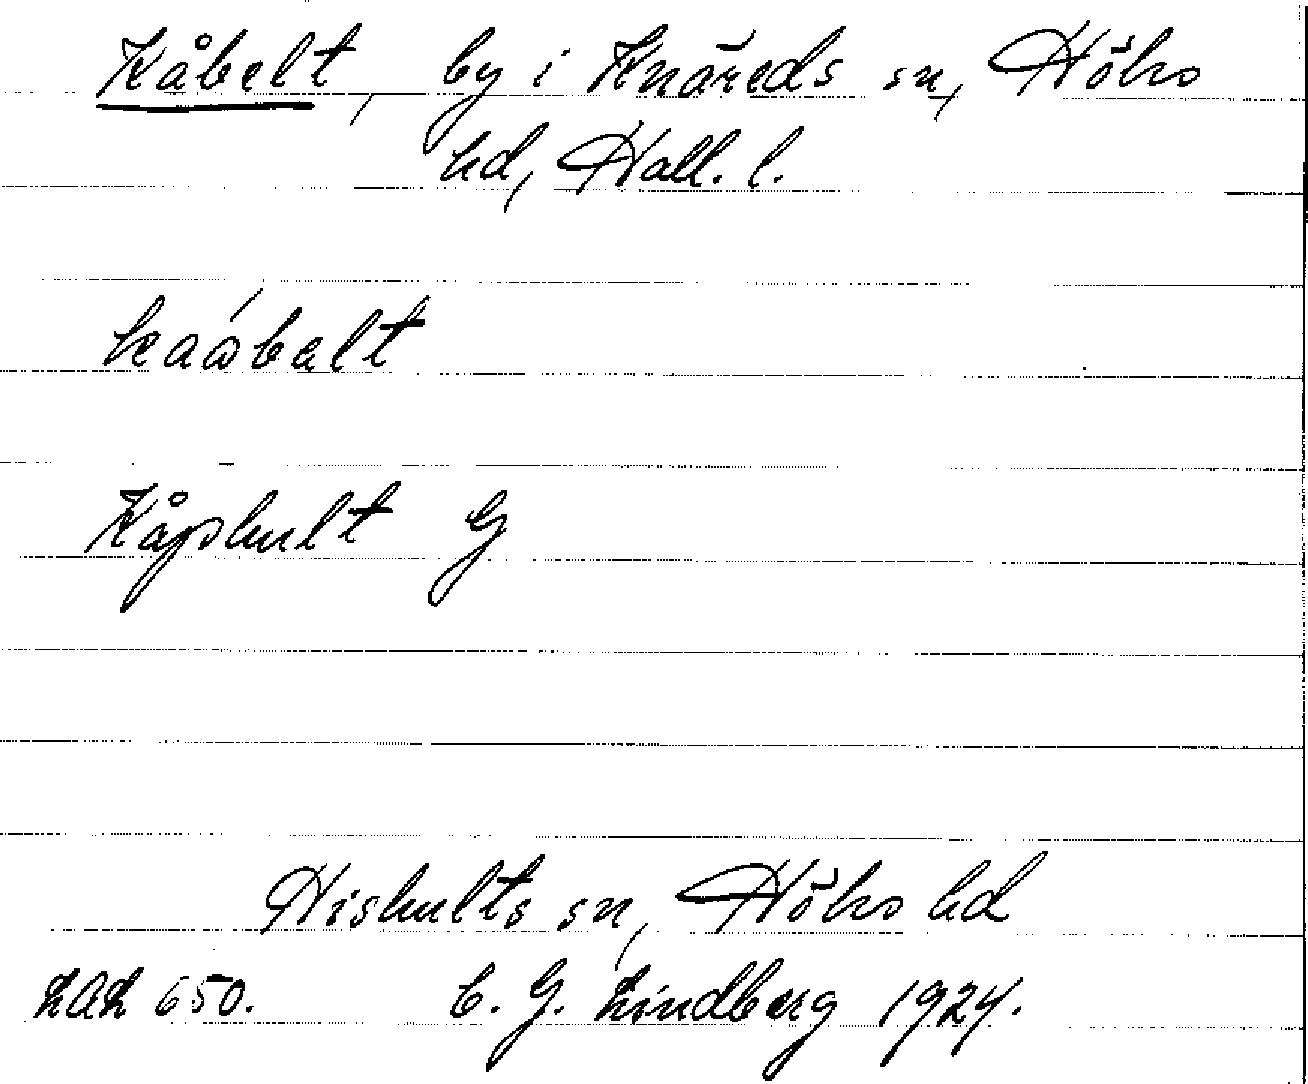 Kåbelt, by i Knäreds sn, Höks
hd, Hall. l.
kaώbalt
Kåpshult G
Hishults sn, Höks hd
LAL 650. C. G. Lindberg 1924.